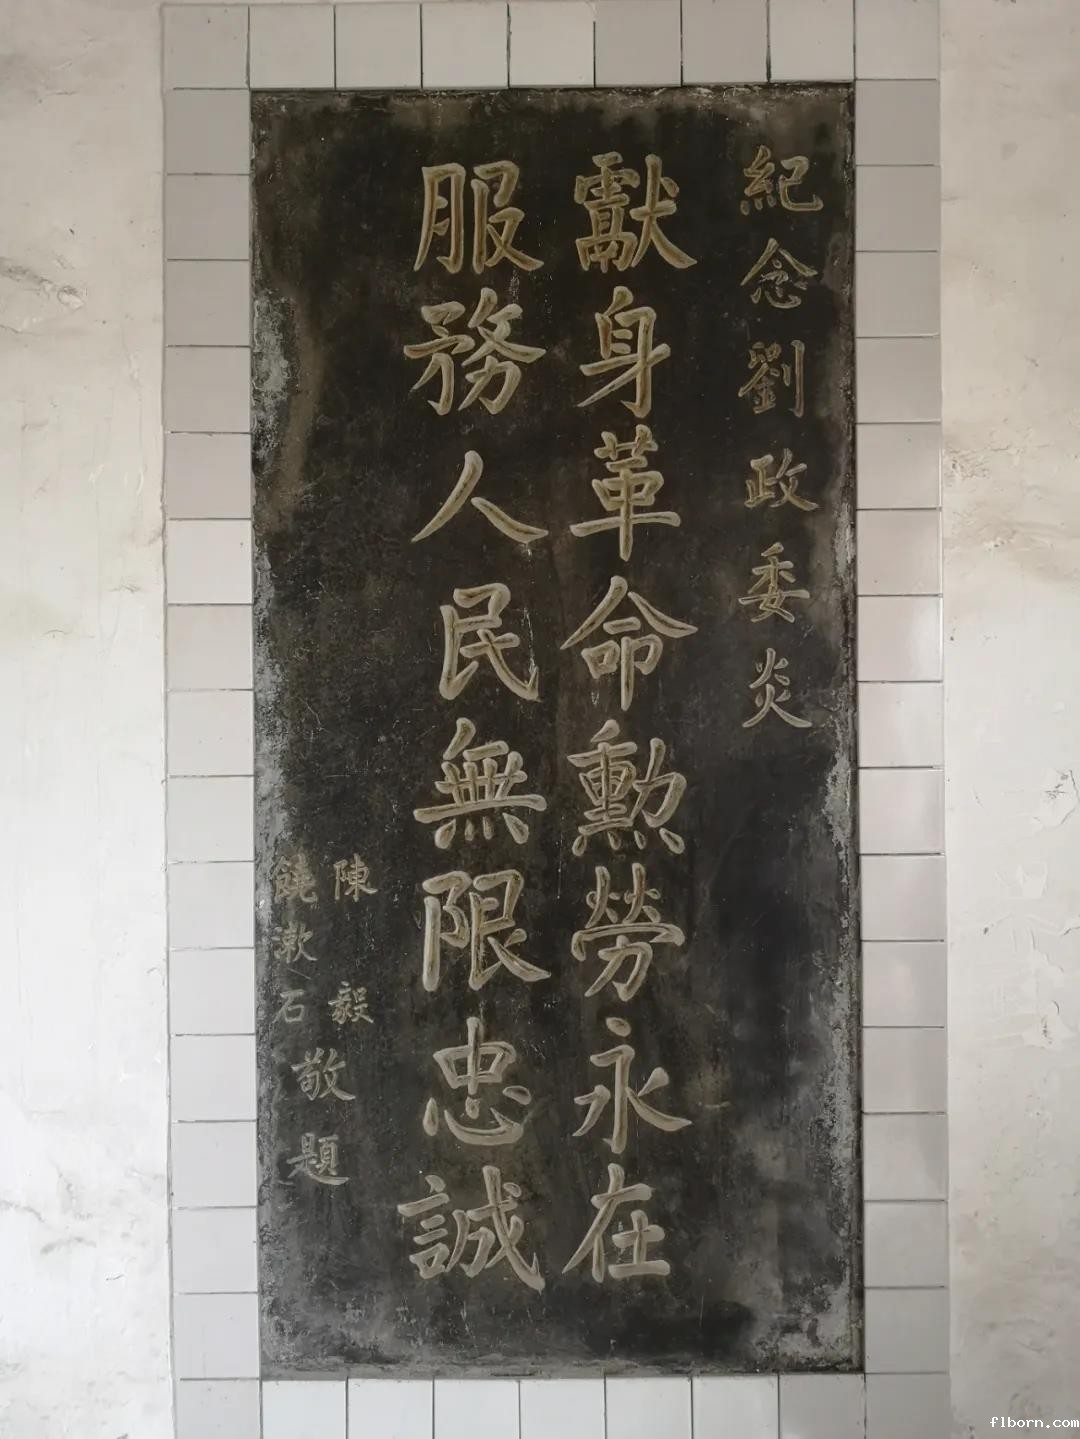 紀念劉政委炎
獻身革命勳勞永在
服務人民無限忠誠
陳毅
饒漱石
敬題
f1born.com